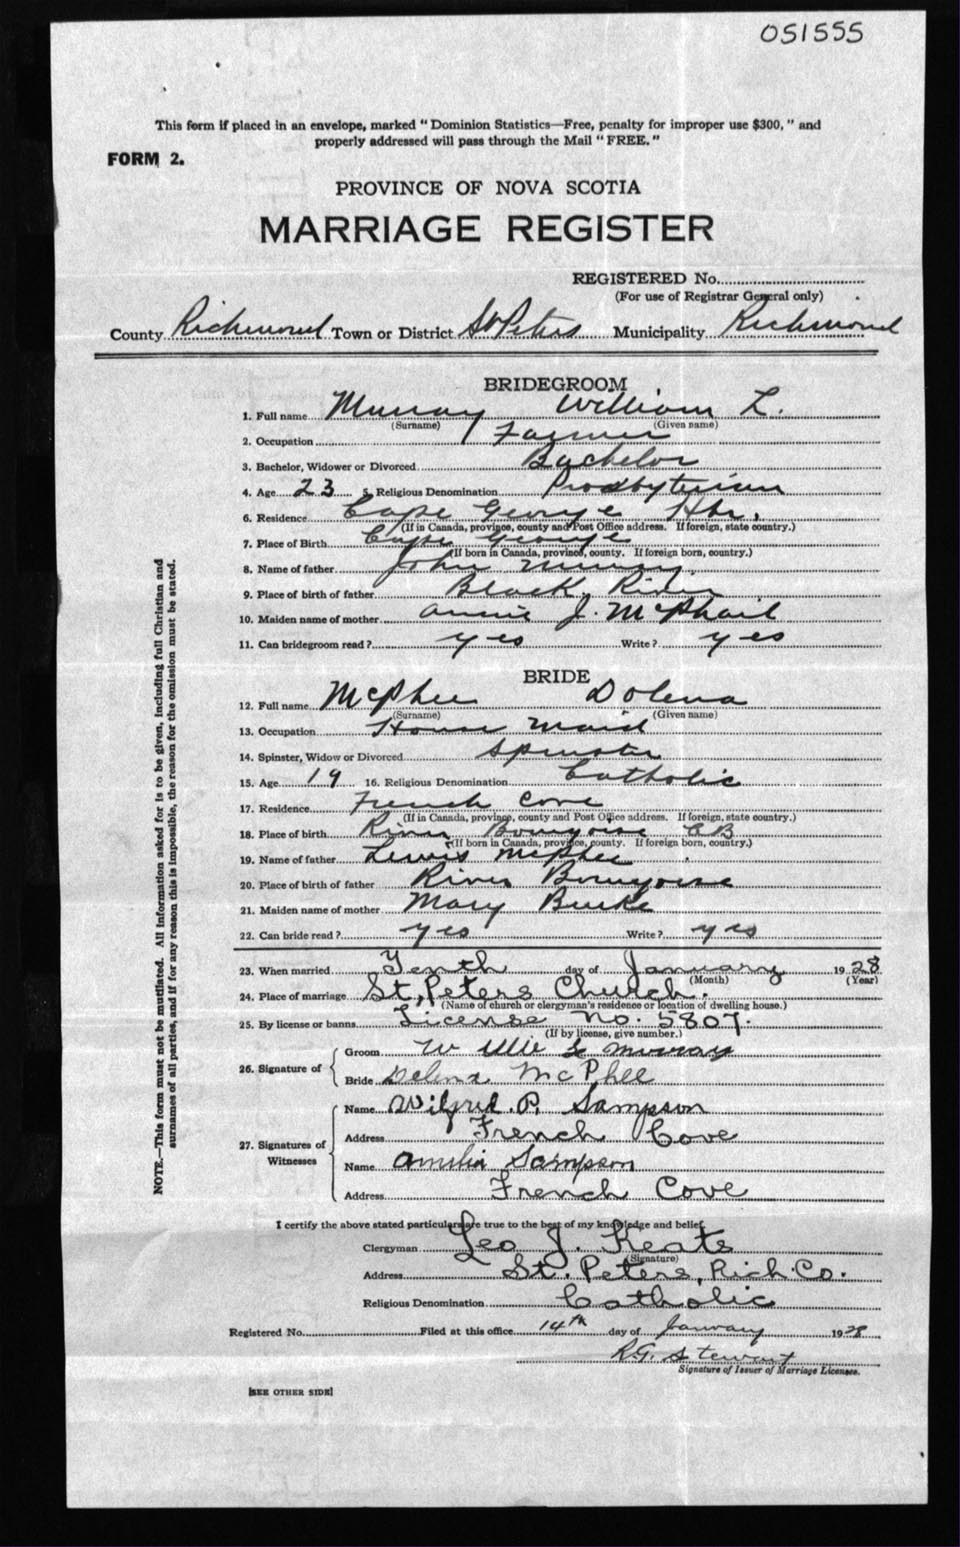 051555
This form if placed in an envelope, marked "Dominion Statistics—Free, penalty for improper use $300," and
properly addressed will pass through the Mail "FREE."
FORM 2.
PROVINCE OF NOVA SCOTIA
MARRIAGE REGISTER
REGISTERED No.
(For use of Registrar General only)
County Richmond Town or District St Peters Municipality Richmond
BRIDEGROOM
1. Full name Murray William L.
(Surname) (Given name)
2. Occupation Farmer
3. Bachelor, Widower or Divorced Bachelor
4. Age 23 5. Religious Denomination Presbyterian
6. Residence Cape George Hbr.
(If in Canada, province, county and Post Office address. If foreign, state country.)
7. Place of Birth Cape George
(If born in Canada, province, county. If foreign born, country.)
8. Name of father John Murray
9. Place of birth of father Black River
10. Maiden name of mother Annie J. McPhail
11. Can bridegroom read? yes Write? yes
BRIDE
12. Full name McPhee Dolena
(Surname) (Given name)
13. Occupation House maid
14. Spinster, Widow or Divorced Spinster
15. Age 19 16. Religious Denomination Catholic
17. Residence French Cove
(If in Canada, province, county and Post Office address. If foreign, state country.)
18. Place of birth River Bourgoise CB
(If born in Canada, province, county. If foreign born, country.)
19. Name of father Lewis McPhee
20. Place of birth of father River Bourgoise
21. Maiden name of mother Mary Burke
22. Can bride read? yes Write? yes
23. When married Tenth day of January 1928
(Month) (Year)
24. Place of marriage St, Peters Church.
(Name of church or clergyman's residence or location of dwelling house.)
25. By license or banns License No. 5807.
(If by license, give number.)
26. Signature of Groom W Illie L Murray
Bride Delena McPhee
27. Signatures of Witnesses Name Wilfred. P. Sampson
Address French Cove
Name Amelia Sampson
Address French Cove
I certify the above stated particulars are true to the best of my knowledge and belief.
Clergyman Leo J. Keats
(Signature)
Address St. Peters, Rich. Co.
Religious Denomination Catholic
Registered No. Filed at this office 14th day of January 1928
R.G. Stewart
Signature of Issuer of Marriage Licenses.
[SEE OTHER SIDE]
NOTE.—This form must not be mutilated. All information asked for is to be given, including full Christian and
surnames of all parties, and if for any reason this is impossible, the reason for the omission must be stated.